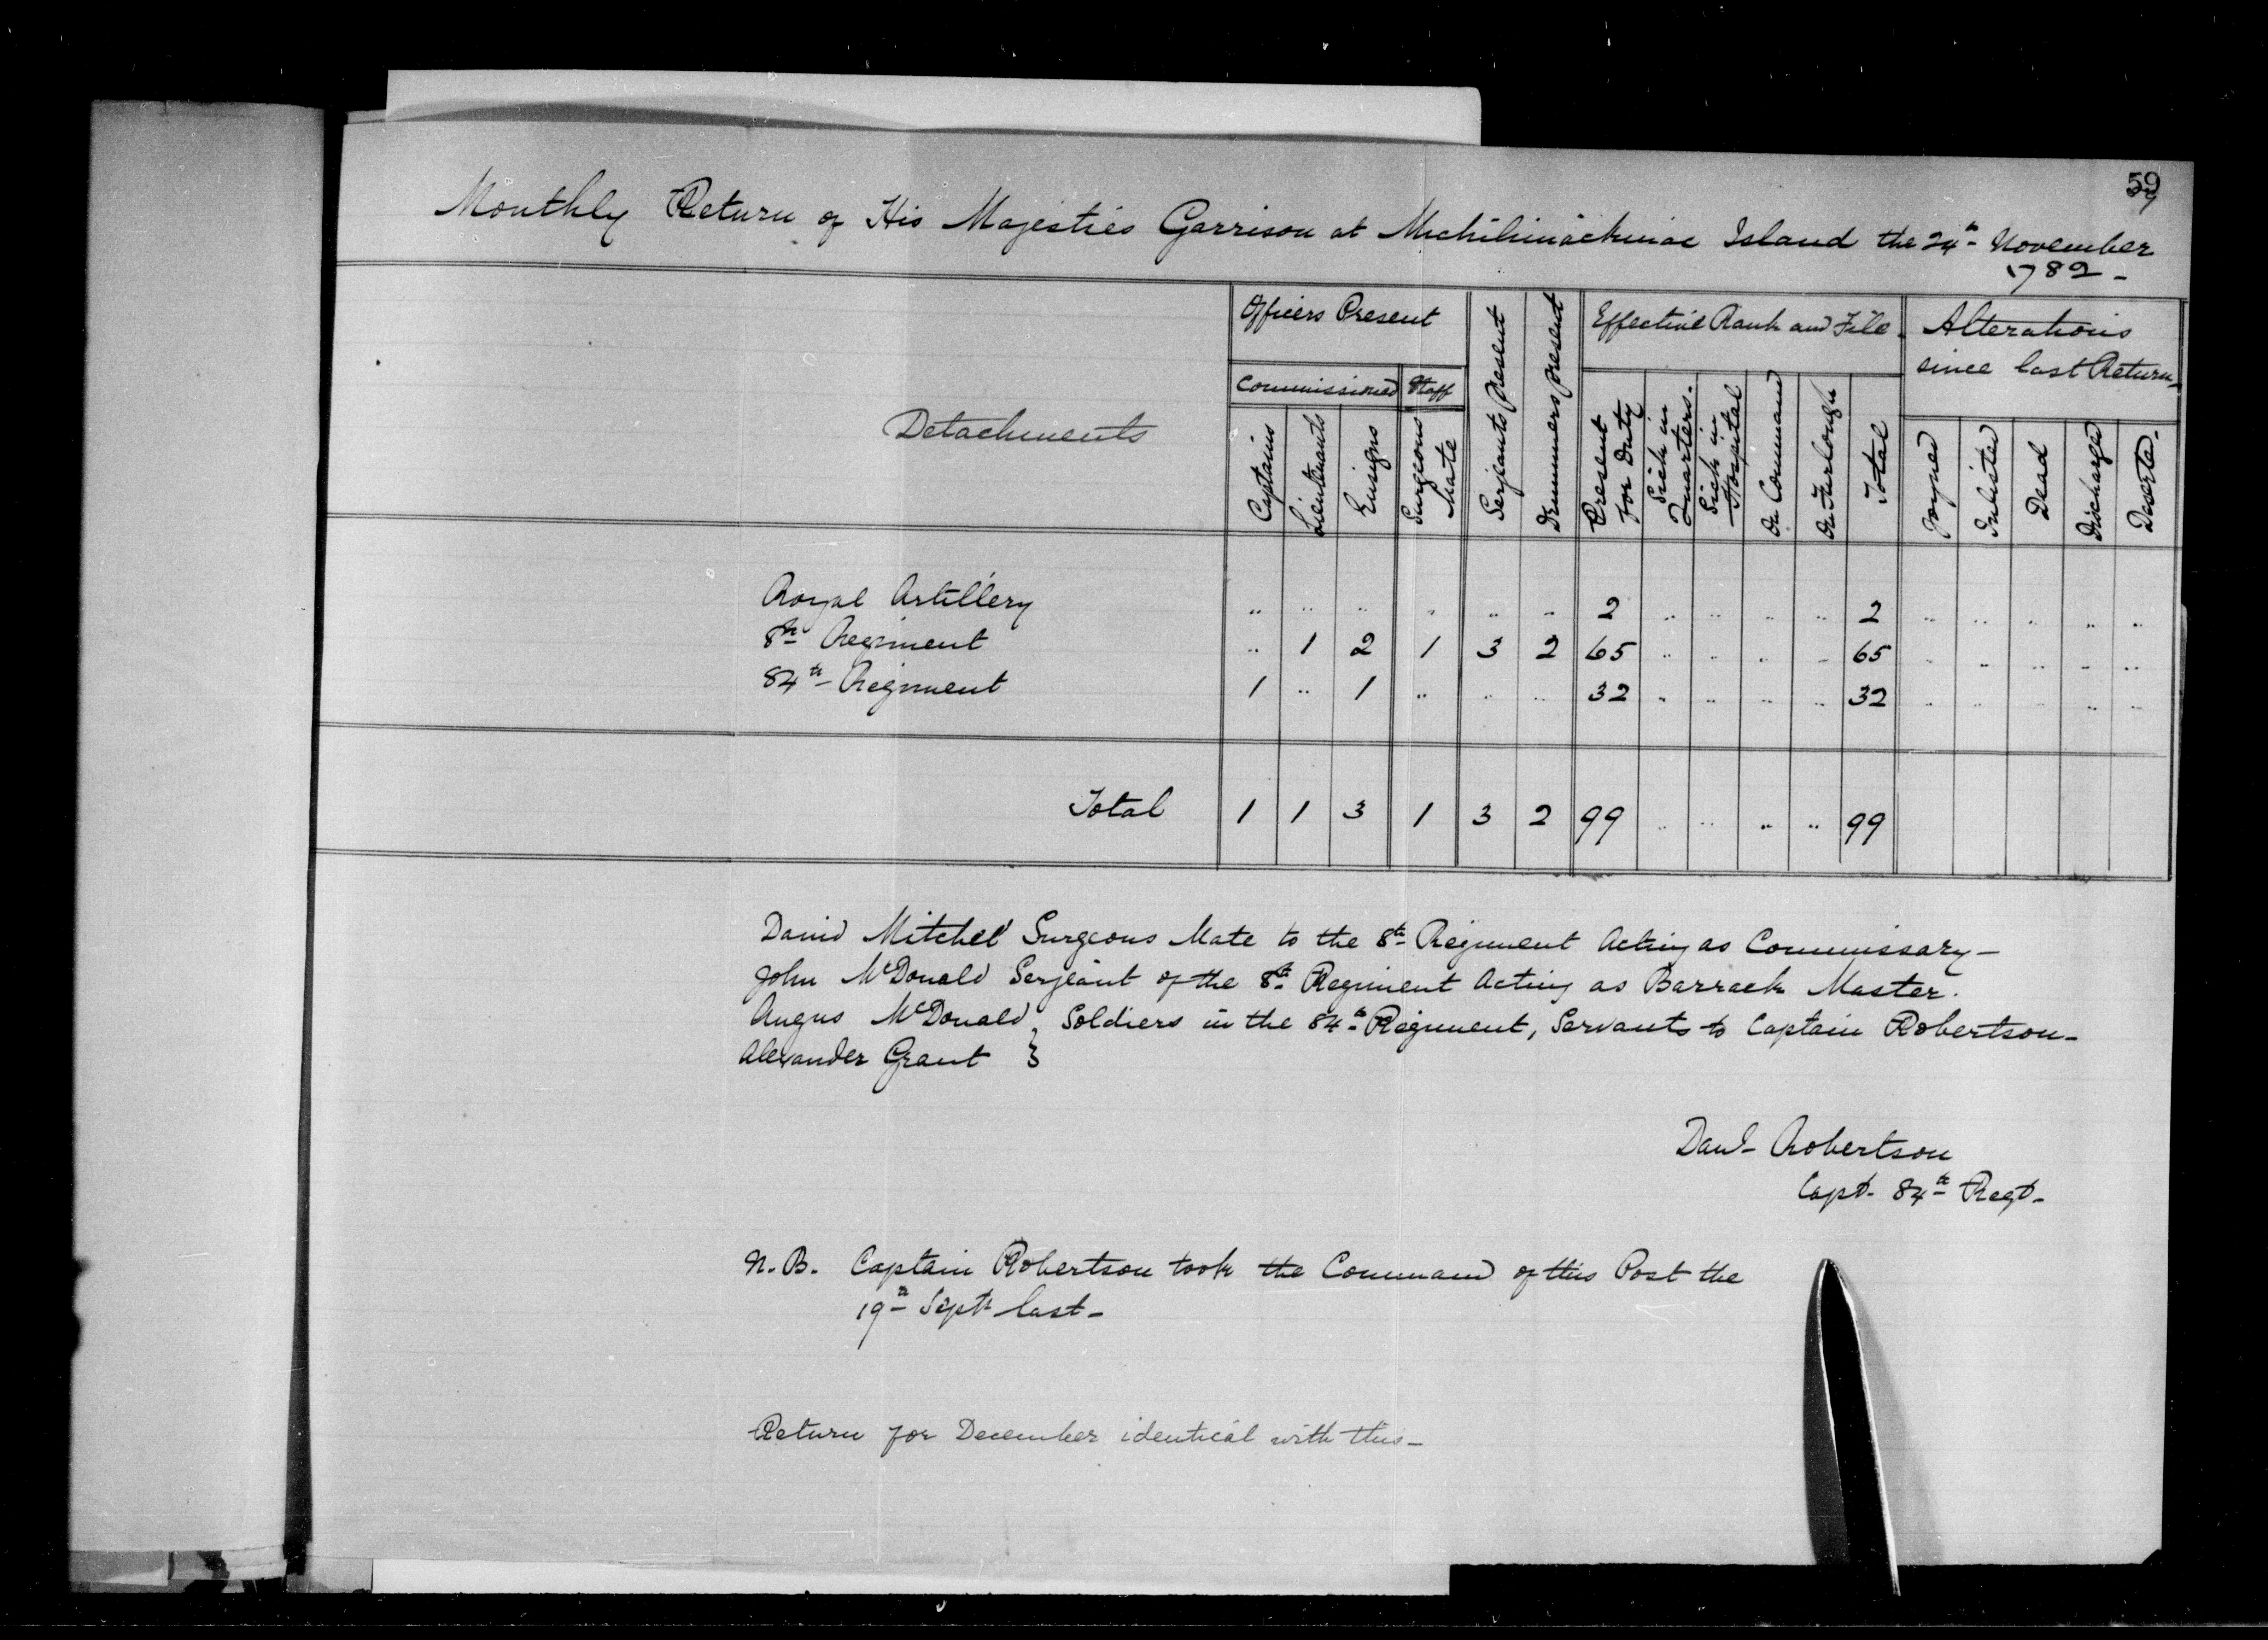 59
Monthly Return of His Majesties Garrison at Michilimackinac Island the 24th November
1782 -
Detachments
Officers Present
Commissioned
Staff
Captains
Lieutenants
Ensigns
Surgeons Mate
Serjeants Present
Drummers Present
Effective Rank and File
Present for Duty
Sick in Quarters.
Sick in Hospital
On Command
On Furlough
Total
Alterations
since last Return -
Joyned
Inlisted
Dead
Discharged
Deserted -
Royal Artillery .. .. .. .. .. .. 2 .. .. .. .. 2 .. .. .. .. ..
8th Regiment .. 1 2 1 3 2 65 .. .. .. .. 65 .. .. .. .. ..
84th Regiment 1 .. 1 .. .. .. 32 .. .. .. .. 32 .. .. .. .. ..
Total 1 1 3 1 3 2 99 .. .. .. .. 99
David Mitchel Surgeons Mate to the 8th Regiment Acting as Commissary -
John McDonald Serjeant of the 8th Regiment Acting as Barrack Master.
Angus McDonald } Soldiers in the 84th Regiment, Servants to Captain Robertson -
Alexander Grant }
Danl Robertson
Capt. 84th Regt -
N.B. Captain Robertson took the Command of this Post the
19th Septr last -
Return for December identical with this -